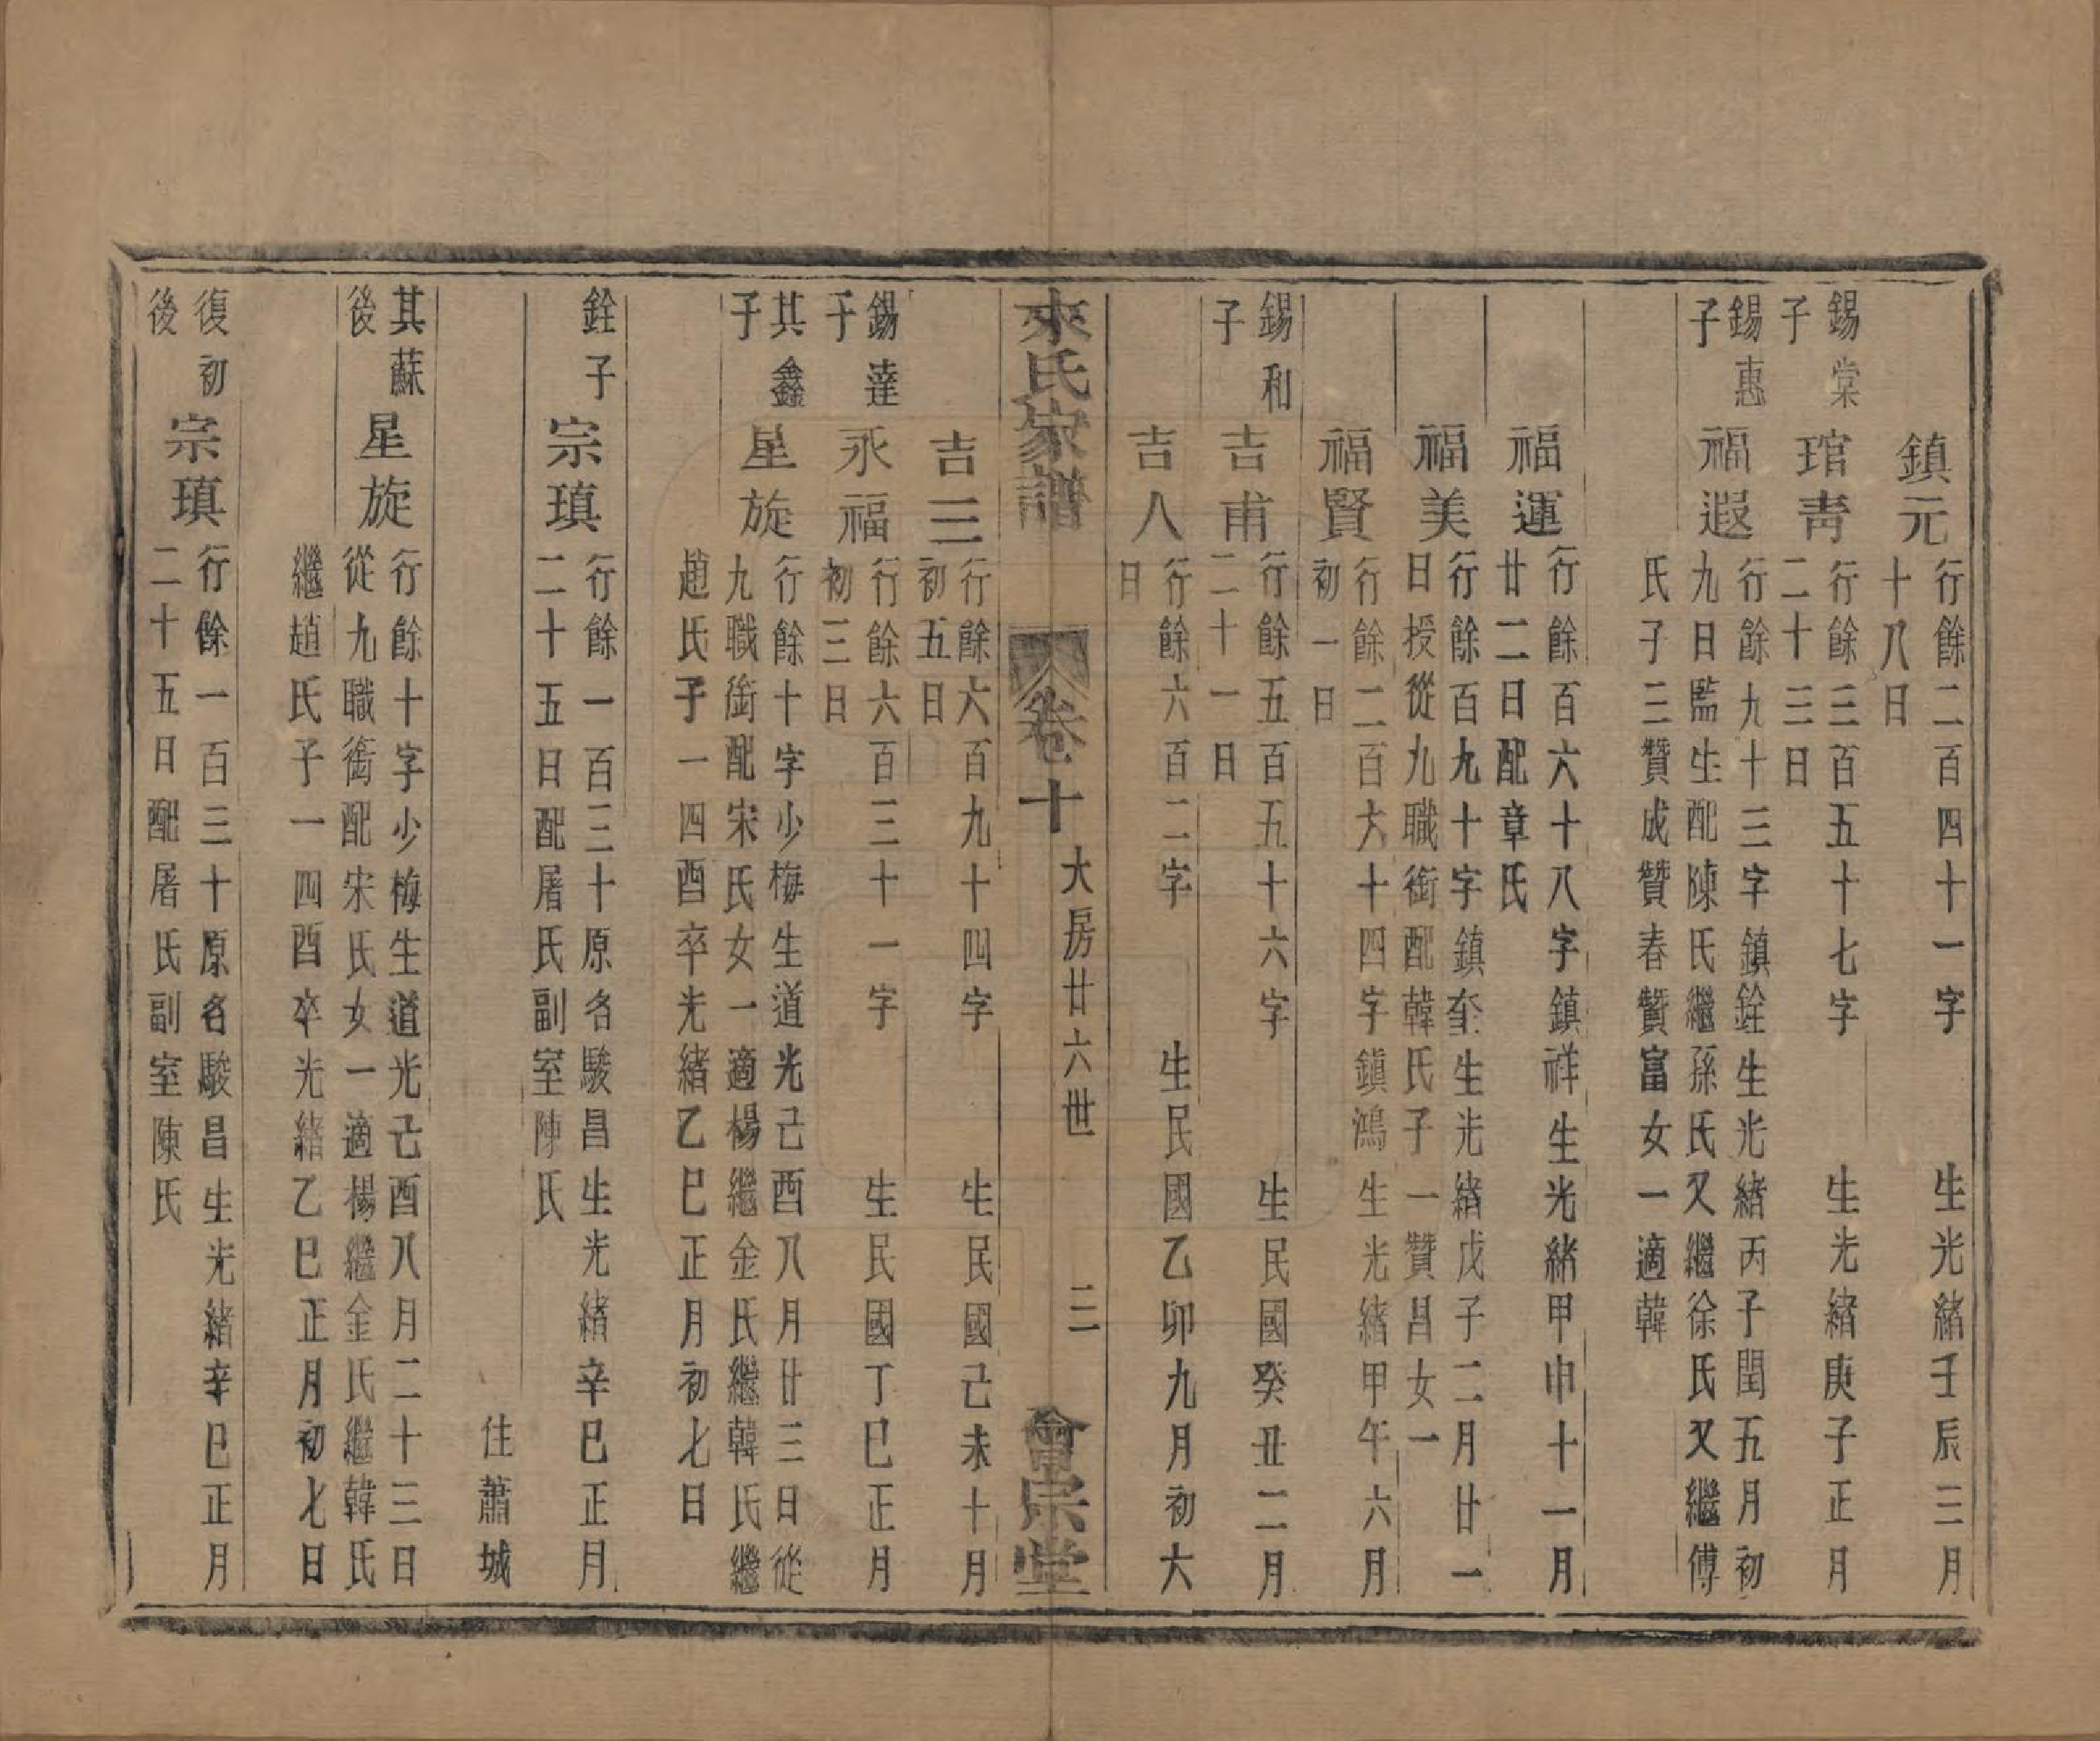 鎮元
行餘二百四十一字　生光緒壬辰三月
十八日
錫棠
子
琯靑
行餘三百五十七字　生光緒庚子正月
二十三日
錫惠
子
福遐
行餘九十三字鎮銓生光緒丙子閏五月初
九日監生配陳氏繼孫氏又繼徐氏又繼傅
氏子三贊成贊春贊富女一適韓
福運
行餘百六十八字鎮祥生光緒甲申十一月
廿二日配章氏
福美
行餘百九十字鎮奎生光緒戊子二月廿一
日授從九職銜配韓氏子一贊昌女一
福賢
行餘二百六十四字鎮鴻生光緒甲午六月
初一日
錫和
子
吉甫
行餘五百五十六字　生民國癸丑二月
二十一日
吉人
行餘六百二字　生民國乙卯九月初六
日
來氏家譜　卷十　大房廿六世　二　會宗堂
吉三
行餘六百九十四字　生民國己未十月
初五日
錫達
子
永福
行餘六百三十一字　生民國丁巳正月
初三日
其鑫
子
星旋
行餘十字少梅生道光己酉八月廿三日從
九職銜配宋氏女一適楊繼金氏繼韓氏繼
趙氏子一四酉卒光緒乙巳正月初七日
銓子
宗瑱
行餘一百三十原名駿昌生光緒辛巳正月
二十五日配屠氏副室陳氏
住蕭城
其蘇
後
星旋
行餘十字少梅生道光己酉八月二十三日
從九職銜配宋氏女一適楊繼金氏繼韓氏
繼趙氏子一四酉卒光緒乙巳正月初七日
復初
後
宗瑱
行餘一百三十原名駿昌生光緒辛巳正月
二十五日配屠氏副室陳氏